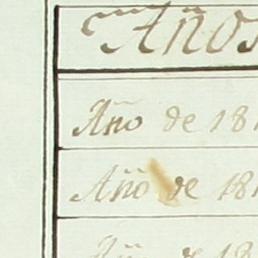 Años
Año de 181
Año de 181